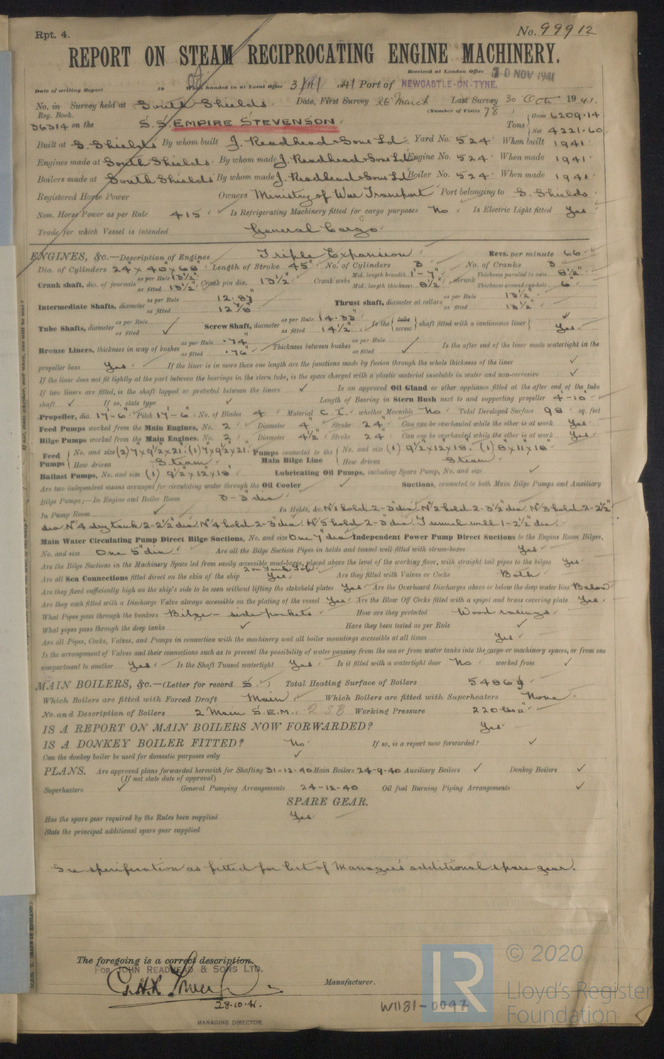 Rpt. 4. No. 99912
REPORT ON STEAM RECIPROCATING ENGINE MACHINERY.
Received at London Office 10 NOV 1941
Date of writing Report 19 When handed in at Local Office 3/11/1941 Port of NEWCASTLE-ON-TYNE.
No. in Survey held at South Shields Date, First Survey 25 March Last Survey 30 Oct 1941
Reg. Book. (Number of Visits 78)
36314 on the S.S. EMPIRE STEVENSON Tons Gross 6209.14
Net 4221.60
Built at S. Shields By whom built J. Readhead & Sons Ld Yard No. 524 When built 1941
Engines made at South Shields By whom made J. Readhead & Sons Ld Engine No. 524 When made 1941
Boilers made at South Shields By whom made J. Readhead & Sons Ld Boiler No. 524 When made 1941
Registered Horse Power Owners Ministry of War Transport Port belonging to S. Shields
Nom. Horse Power as per Rule 415 Is Refrigerating Machinery fitted for cargo purposes No Is Electric Light fitted Yes
Trade for which Vessel is intended General Cargo
ENGINES, &c.—Description of Engines Triple Expansion Revs. per minute 66
Dia. of Cylinders 24 x 40 x 68 Length of Stroke 45" No. of Cylinders 3 No. of Cranks 3
Crank shaft, dia. of journals as per Rule 13½" as fitted 13½" Crank pin dia. 13½" Crank webs Mid. length breadth 1'-7" Mid. length thickness 8½" shrunk Thickness parallel to axis 8½" Thickness around eyehole 6"
Intermediate Shafts, diameter as per Rule as fitted 12⅞ Thrust shaft, diameter at collars as per Rule 13½" as fitted 13½"
Tube Shafts, diameter as per Rule as fitted Screw Shaft, diameter as per Rule as fitted 14½" Is the tube screw shaft fitted with a continuous liner Yes
Bronze Liners, thickness in way of bushes as per Rule .74 as fitted .76 Thickness between bushes as per Rule as fitted Is the after end of the liner made watertight in the
propeller boss Yes If the liner is in more than one length are the junctions made by fusion through the whole thickness of the liner
If the liner does not fit tightly at the part between the bearings in the stern tube, is the space charged with a plastic material insoluble in water and non-corrosive
If two liners are fitted, is the shaft lapped or protected between the liners Is an approved Oil Gland or other appliance fitted at the after end of the tube
shaft If so, state type Length of Bearing in Stern Bush next to and supporting propeller 4'-10"
Propeller, dia. 17'-6" Pitch 17'-6" No. of Blades 4 Material C.I. whether Moveable No Total Developed Surface 98 sq. feet
Feed Pumps worked from the Main Engines, No. 2 Diameter 4" Stroke 24" Can one be overhauled while the other is at work Yes
Bilge Pumps worked from the Main Engines, No. 2 Diameter 4½" Stroke 24 Can one be overhauled while the other is at work Yes
Feed Pumps No. and size (2) 7 x 9½ x 21; (1) 7 x 9½ x 21 How driven Steam Pumps connected to the Main Bilge Line No. and size (1) 9½ x 12 x 18 (1) 8 x 11 x 18 How driven Steam
Ballast Pumps, No. and size (1) 9½ x 12 x 18 Lubricating Oil Pumps, including Spare Pump, No. and size
Are two independent means arranged for circulating water through the Oil Cooler Suctions, connected to both Main Bilge Pumps and Auxiliary
Bilge Pumps;—In Engine and Boiler Room 5 - 3" dia
In Pump Room In Holds, &c. No 1 hold 2 - 3" dia No 2 hold 2 - 3½" dia No 3 hold 2 - 2½"
dia No 4 dry tank 2 - 2½" dia No 4 hold 2 - 3" dia No 5 hold 2 - 3" dia Tunnel well 1 - 2½" dia
Main Water Circulating Pump Direct Bilge Suctions, No. and size One 7" dia Independent Power Pump Direct Suctions to the Engine Room Bilges,
No. and size One 5" dia Are all the Bilge Suction Pipes in holds and tunnel well fitted with strum-boxes Yes
Are the Bilge Suctions in the Machinery Spaces led from easily accessible mud-boxes, placed above the level of the working floor, with straight tail pipes to the bilges Yes
2 on Tank Top
Are all Sea Connections fitted direct on the skin of the ship Yes Are they fitted with Valves or Cocks Both
Are they fixed sufficiently high on the ship's side to be seen without lifting the stokehold plates Yes Are the Overboard Discharges above or below the deep water line Below
Are they each fitted with a Discharge Valve always accessible on the plating of the vessel Yes Are the Blow Off Cocks fitted with a spigot and brass covering plate Yes
What Pipes pass through the bunkers Bilge - side pockets How are they protected Wood casings
What pipes pass through the deep tanks Have they been tested as per Rule
Are all Pipes, Cocks, Valves, and Pumps in connection with the machinery and all boiler mountings accessible at all times Yes
Is the arrangement of Valves and their connections such as to prevent the possibility of water passing from the sea or from water tanks into the cargo or machinery spaces, or from one
compartment to another Yes Is the Shaft Tunnel watertight Yes Is it fitted with a watertight door No worked from
MAIN BOILERS, &c.—(Letter for record S) Total Heating Surface of Boilers 5486
Which Boilers are fitted with Forced Draft Main Which Boilers are fitted with Superheaters None
No. and Description of Boilers 2 Main S.E.M. 2SB Working Pressure 220 lbs
IS A REPORT ON MAIN BOILERS NOW FORWARDED? Yes
IS A DONKEY BOILER FITTED? No If so, is a report now forwarded?
Can the donkey boiler be used for domestic purposes only
PLANS. Are approved plans forwarded herewith for Shafting 31-12-40 Main Boilers 24-9-40 Auxiliary Boilers Donkey Boilers
(If not state date of approval)
Superheaters General Pumping Arrangements 24-12-40 Oil fuel Burning Piping Arrangements
SPARE GEAR.
Has the spare gear required by the Rules been supplied Yes
State the principal additional spare gear supplied
See specification as fitted for list of Manager's additional spare gear.
The foregoing is a correct description.
FOR JOHN READHEAD & SONS LTD.
Manufacturer.
28.10.41.
MANAGING DIRECTOR
W1181-0047
LR
© 2020
Lloyd's Register
Foundation